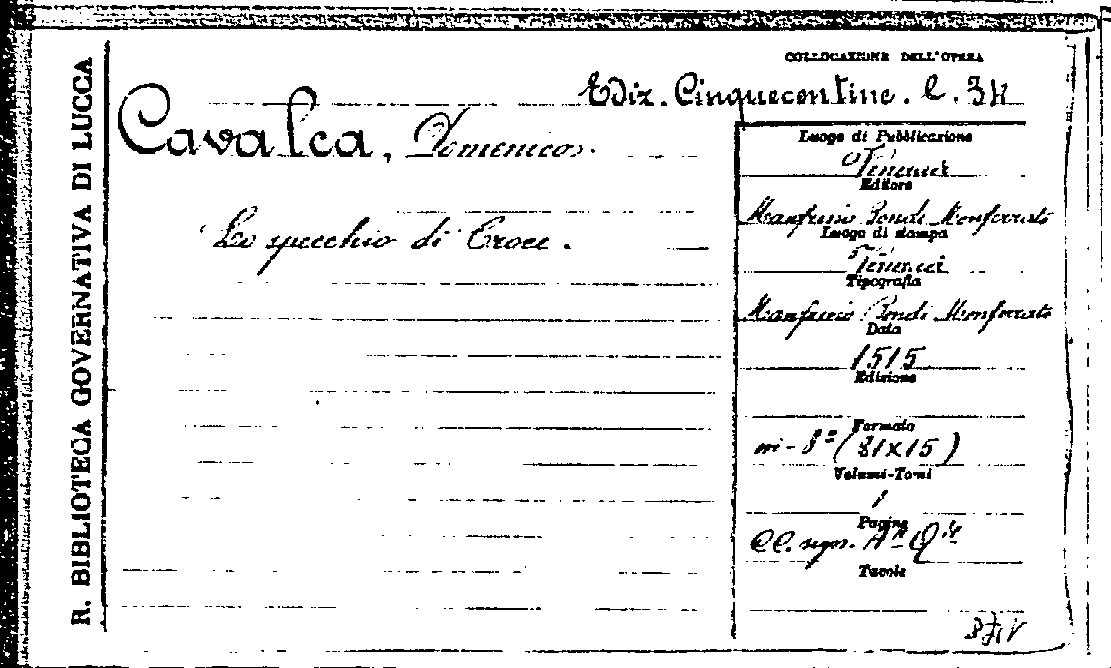 R. BIBLIOTECA GOVERNATIVA DI LUCCA
COLLOCAZIONE DELL'OPERA
Ediz. Cinquecentine. C. 34
Cavalca, Domenico.
Lo specchio di Croce.
Luogo di Pubblicazione
Venezia
Editore
Manfrino Bondi Monferrato
Luogo di stampa
Venezia
Tipografia
Manfrino Bondi Monferrato
Data
1515
Edizione
Formato
in-8° (21x15)
Volumi-Tomi
1
Pagine
CC. segn.
Tavole